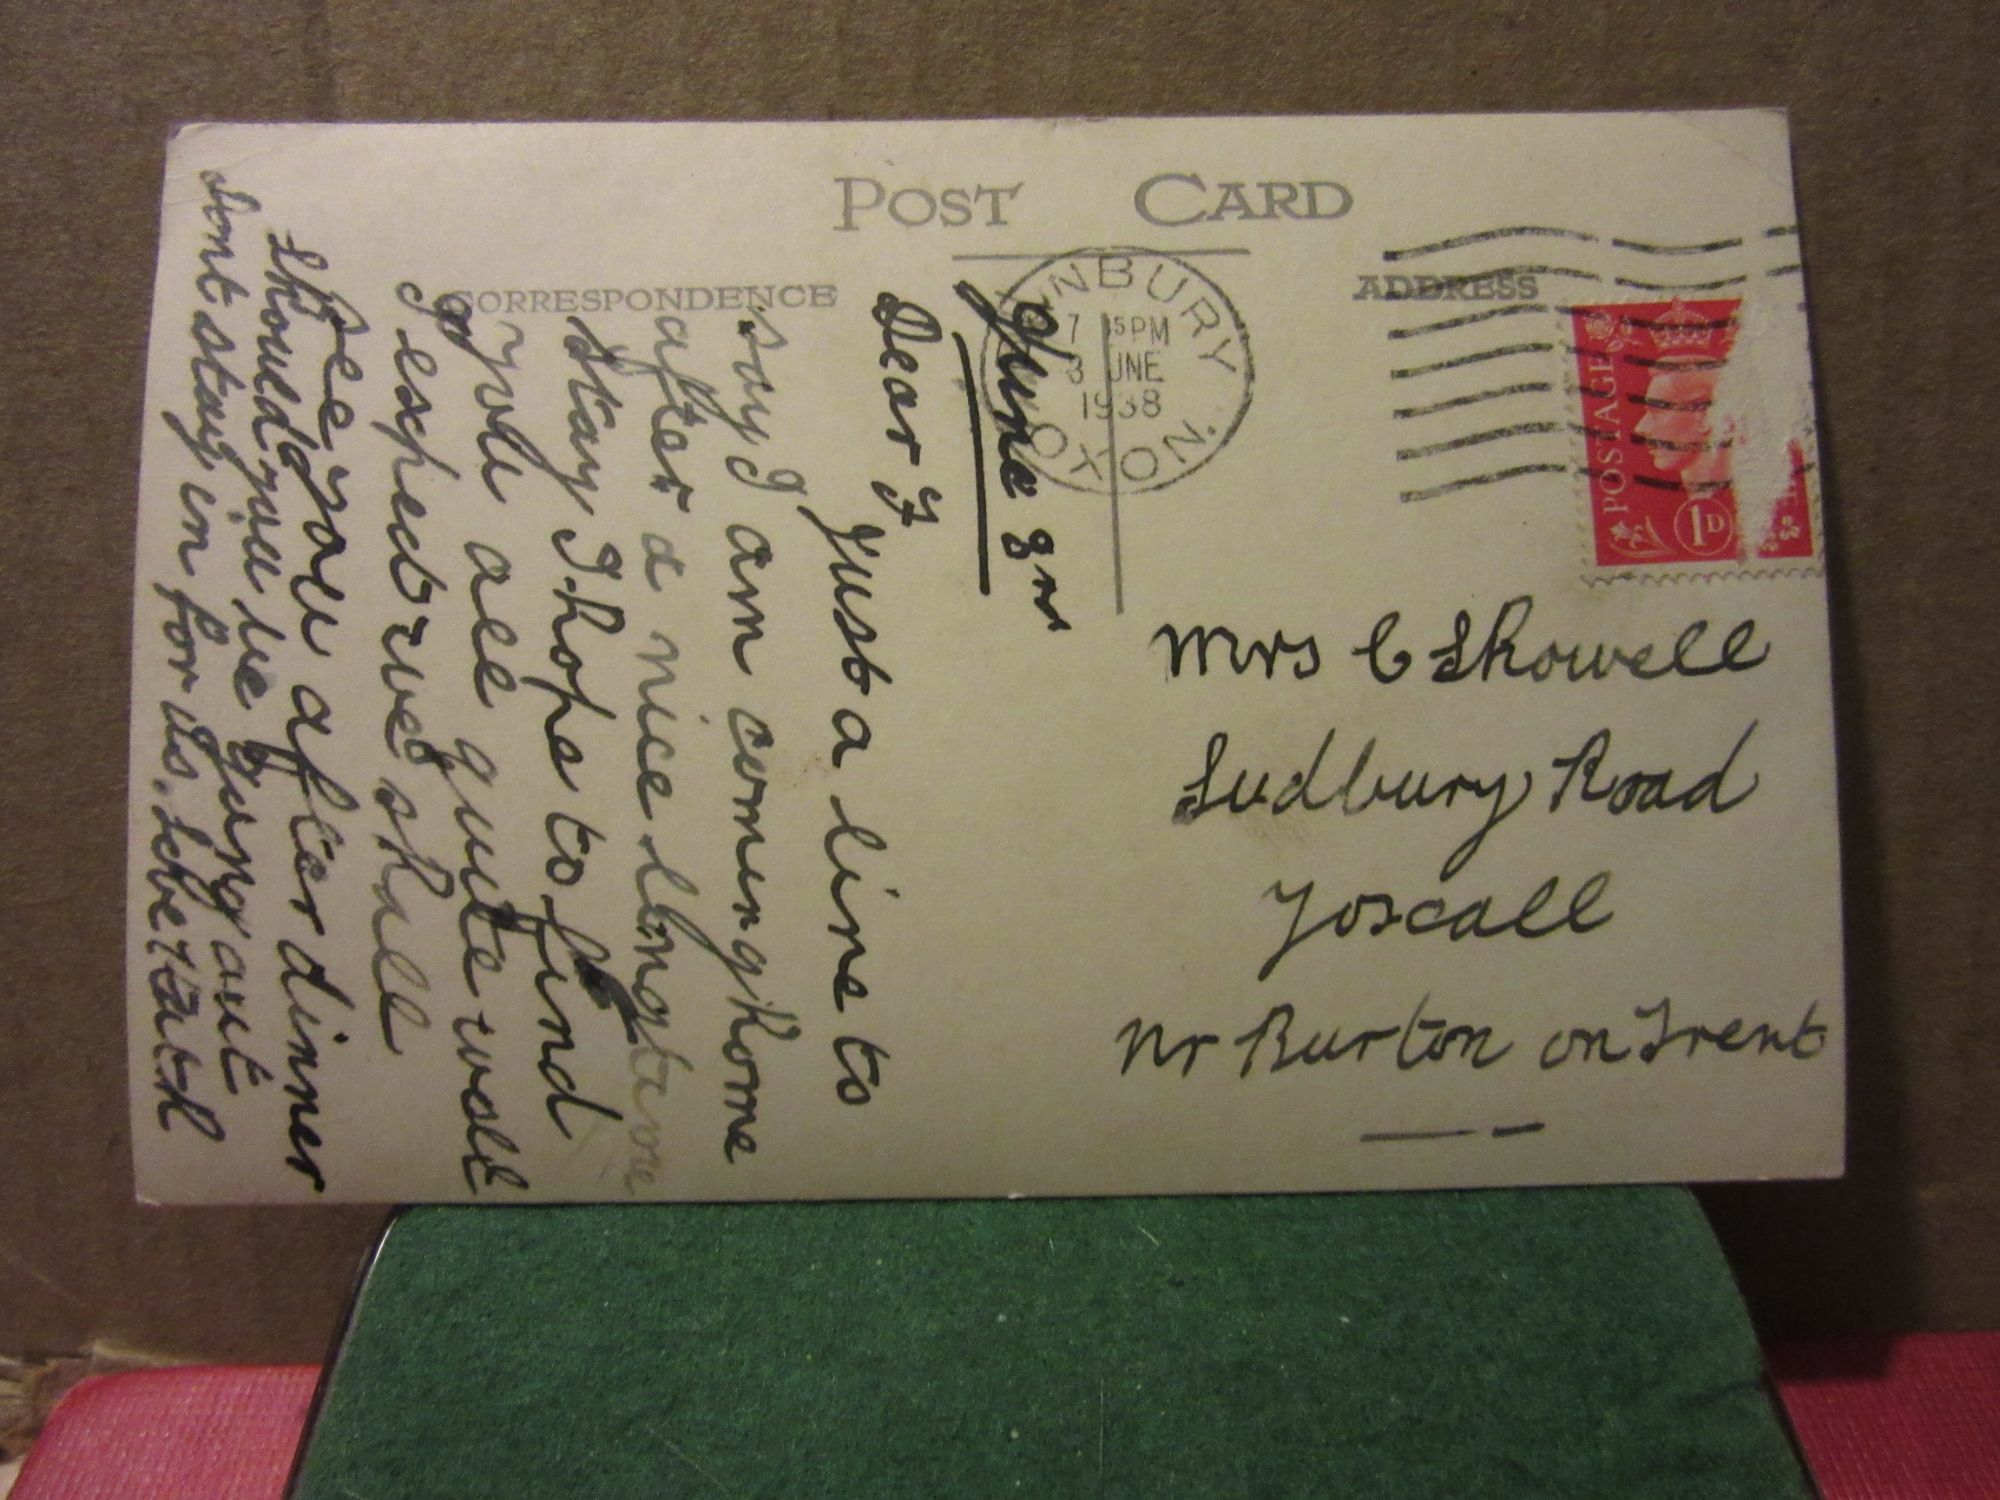 POST CARD
CORRESPONDENCE
ADDRESS
NBURY
7 15PM
3 JUNE
1938
OXON.
POSTAGE
1D
June 3rd
Dear F
Just a line to
say I am coming home
after a nice long time
stay I hope to find
you all quite well
I expect we shall
see you after dinner
should you be going out
dont stay in for us.
Mrs C Showell
Sudbury Road
Yoxall
Nr Burton on Trent